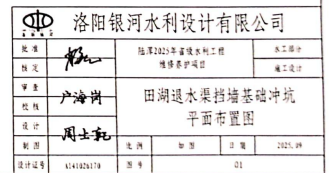 洛阳银河水利设计有限公司
批准
核定
陆浑2025年省级水利工程
维修养护项目
水工部分
施工设计
审查
校核
户海岗
田湖退水渠挡墙基础冲坑
平面布置图
设计
周士乾
制图
比例 如图 日期 2025.09
设计证号 A141026170 图号 01